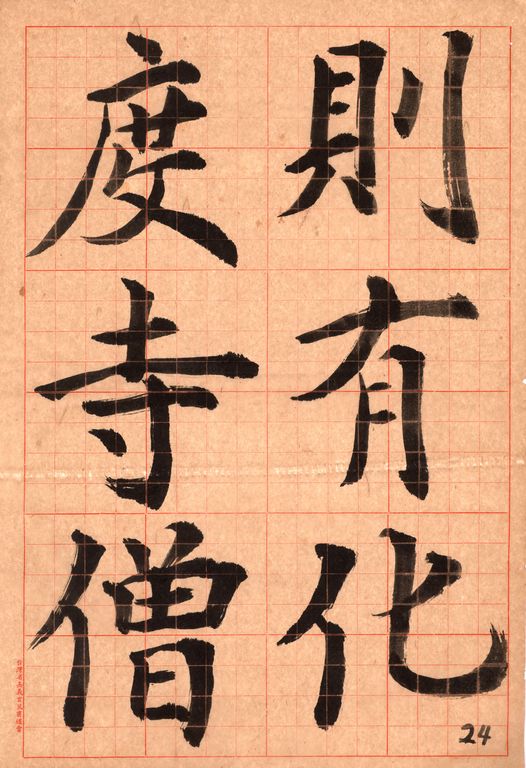 則有化
度寺僧
24